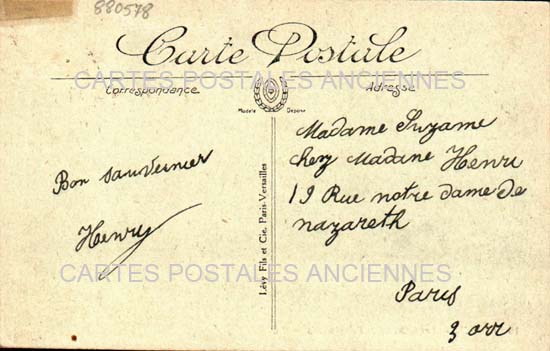 880578
Carte Postale
CARTES POSTALES ANCIENNES
Correspondance
Adresse
Modèle Déposé
Bon sauvernier
Henry
Lévy Fils et Cie, Paris-Versailles
Madame Suzame
chez Madane Henri
19 Rue notre dame de
nazareth
CARTES POSTALES ANCIENNES
Paris
3 arr